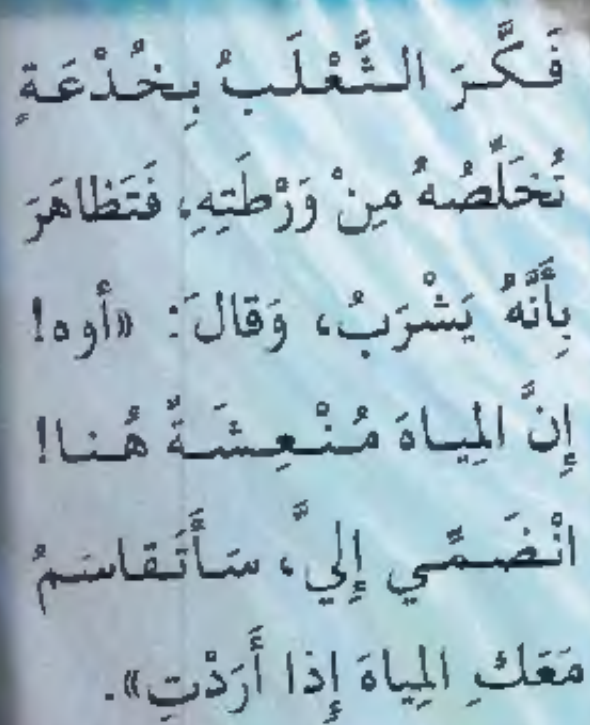 فَكَّرَ الثَّعْلَبُ بِخُدْعَةٍ
تُخَلِّصُهُ مِنْ وَرْطَتِهِ، فَتَظاهَرَ
بِأَنَّهُ يَشْرَبُ، وَقالَ: «أوه!
إِنَّ المِياهَ مُنْعِشَةٌ هُنا!
انْضَمّي إِلَيَّ، سَأَتَقاسَمُ
مَعَكِ المِياهَ إِذا أَرَدْتِ».